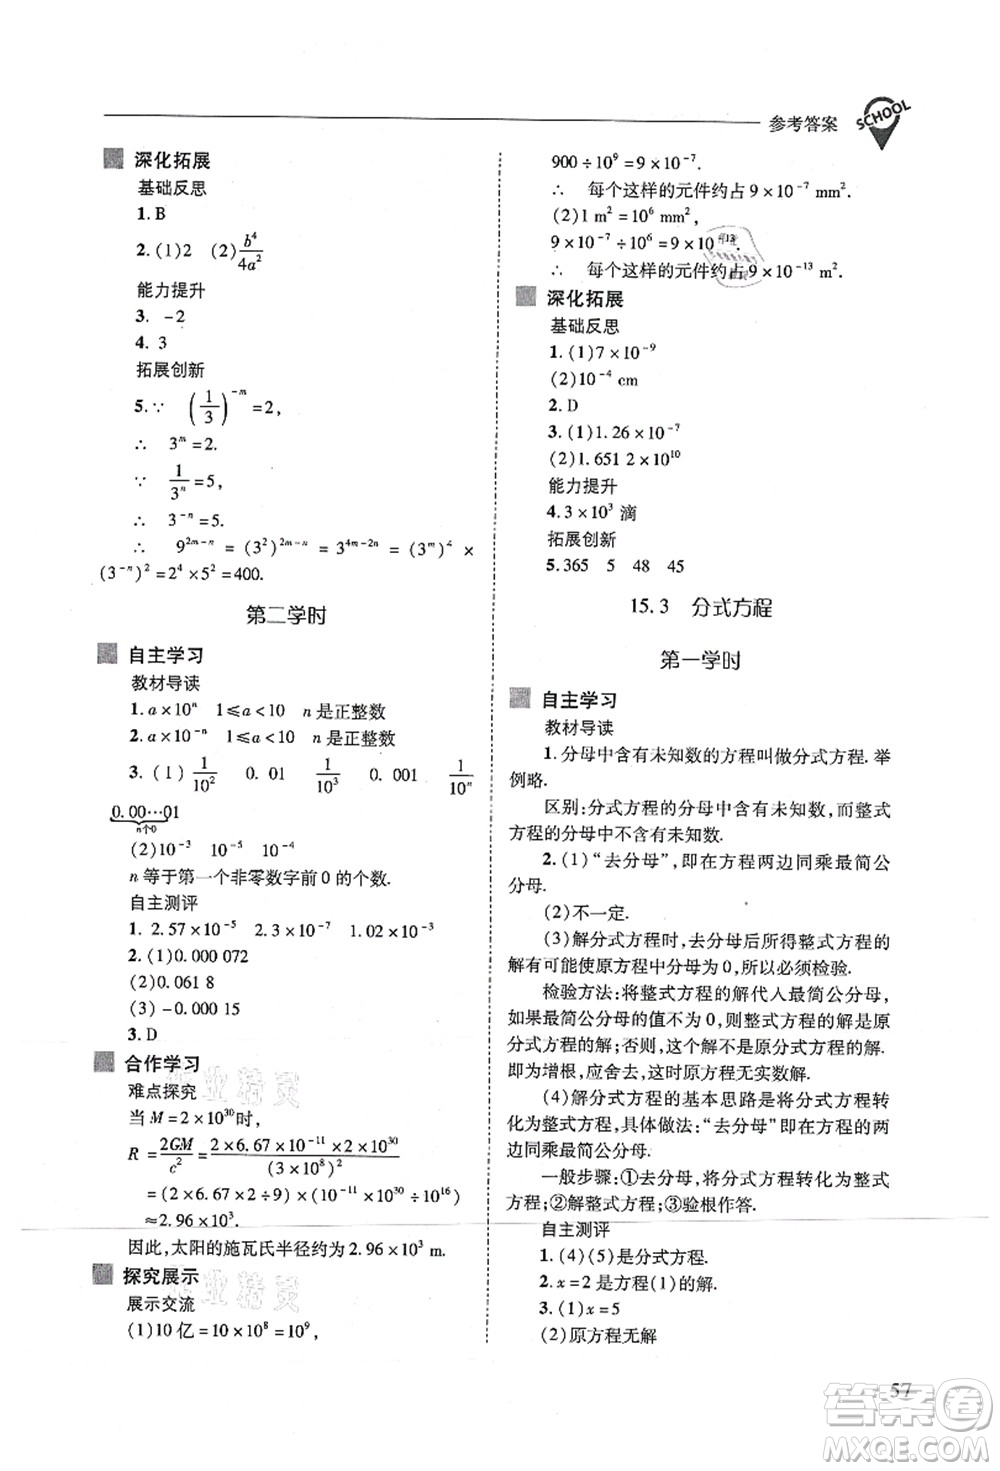 参考答案
SCHOOL
深化拓展
基础反思
1. B
2. (1)2 (2) b⁴/4a²
能力提升
3. -2
4. 3
拓展创新
5. ∵ (1/3)⁻ᵐ = 2,
∴ 3ᵐ = 2.
∵ 1/3ⁿ = 5,
∴ 3⁻ⁿ = 5.
∴ 9²ᵐ⁻ⁿ = (3²)²ᵐ⁻ⁿ = 3⁴ᵐ⁻²ⁿ = (3ᵐ)⁴ ×
(3⁻ⁿ)² = 2⁴ × 5² = 400.
第二学时
自主学习
教材导读
1. a × 10ⁿ 1 ⩽ a < 10 n 是正整数
2. a × 10⁻ⁿ 1 ⩽ a < 10 n 是正整数
3. (1) 1/10² 0.01 1/10³ 0.001 1/10ⁿ
0.00…01
n个0
(2)10⁻³ 10⁻⁵ 10⁻⁴
n 等于第一个非零数字前 0 的个数.
自主测评
1. 2.57 × 10⁻⁵ 2.3 × 10⁻⁷ 1.02 × 10⁻³
2. (1)0.000 072
(2)0.061 8
(3) -0.000 15
3. D
合作学习
难点探究
当 M = 2 × 10³⁰ 时,
R = 2GM/c² = 2 × 6.67 × 10⁻¹¹ × 2 × 10³⁰/(3 × 10⁸)²
= (2 × 6.67 × 2 ÷ 9) × (10⁻¹¹ × 10³⁰ ÷ 10¹⁶)
≈ 2.96 × 10³.
因此,太阳的施瓦氏半径约为 2.96 × 10³ m.
探究展示
展示交流
(1)10 亿 = 10 × 10⁸ = 10⁹,
900 ÷ 10⁹ = 9 × 10⁻⁷.
∴ 每个这样的元件约占 9 × 10⁻⁷ mm².
(2)1 m² = 10⁶ mm²,
9 × 10⁻⁷ ÷ 10⁶ = 9 × 10⁻¹³.
∴ 每个这样的元件约占 9 × 10⁻¹³ m².
深化拓展
基础反思
1. (1)7 × 10⁻⁹
(2)10⁻⁴ cm
2. D
3. (1)1.26 × 10⁻⁷
(2)1.651 2 × 10¹⁰
能力提升
4. 3 × 10³ 滴
拓展创新
5. 365 5 48 45
15.3 分式方程
第一学时
自主学习
教材导读
1. 分母中含有未知数的方程叫做分式方程. 举
例略.
区别:分式方程的分母中含有未知数,而整式
方程的分母中不含有未知数.
2. (1)“去分母”,即在方程两边同乘最简公
分母.
(2)不一定.
(3)解分式方程时,去分母后所得整式方程的
解有可能使原方程中分母为 0,所以必须检验.
检验方法:将整式方程的解代人最简公分母,
如果最简公分母的值不为 0,则整式方程的解是原
分式方程的解;否则,这个解不是原分式方程的解.
即为增根,应舍去,这时原方程无实数解.
(4)解分式方程的基本思路是将分式方程转
化为整式方程,具体做法:“去分母”即在方程的两
边同乘最简公分母.
一般步骤:①去分母,将分式方程转化为整式
方程;②解整式方程;③验根作答.
自主测评
1. (4)(5)是分式方程.
2. x = 2 是方程(1)的解.
3. (1)x = 5
(2)原方程无解
57
答案圈
MXQE.COM